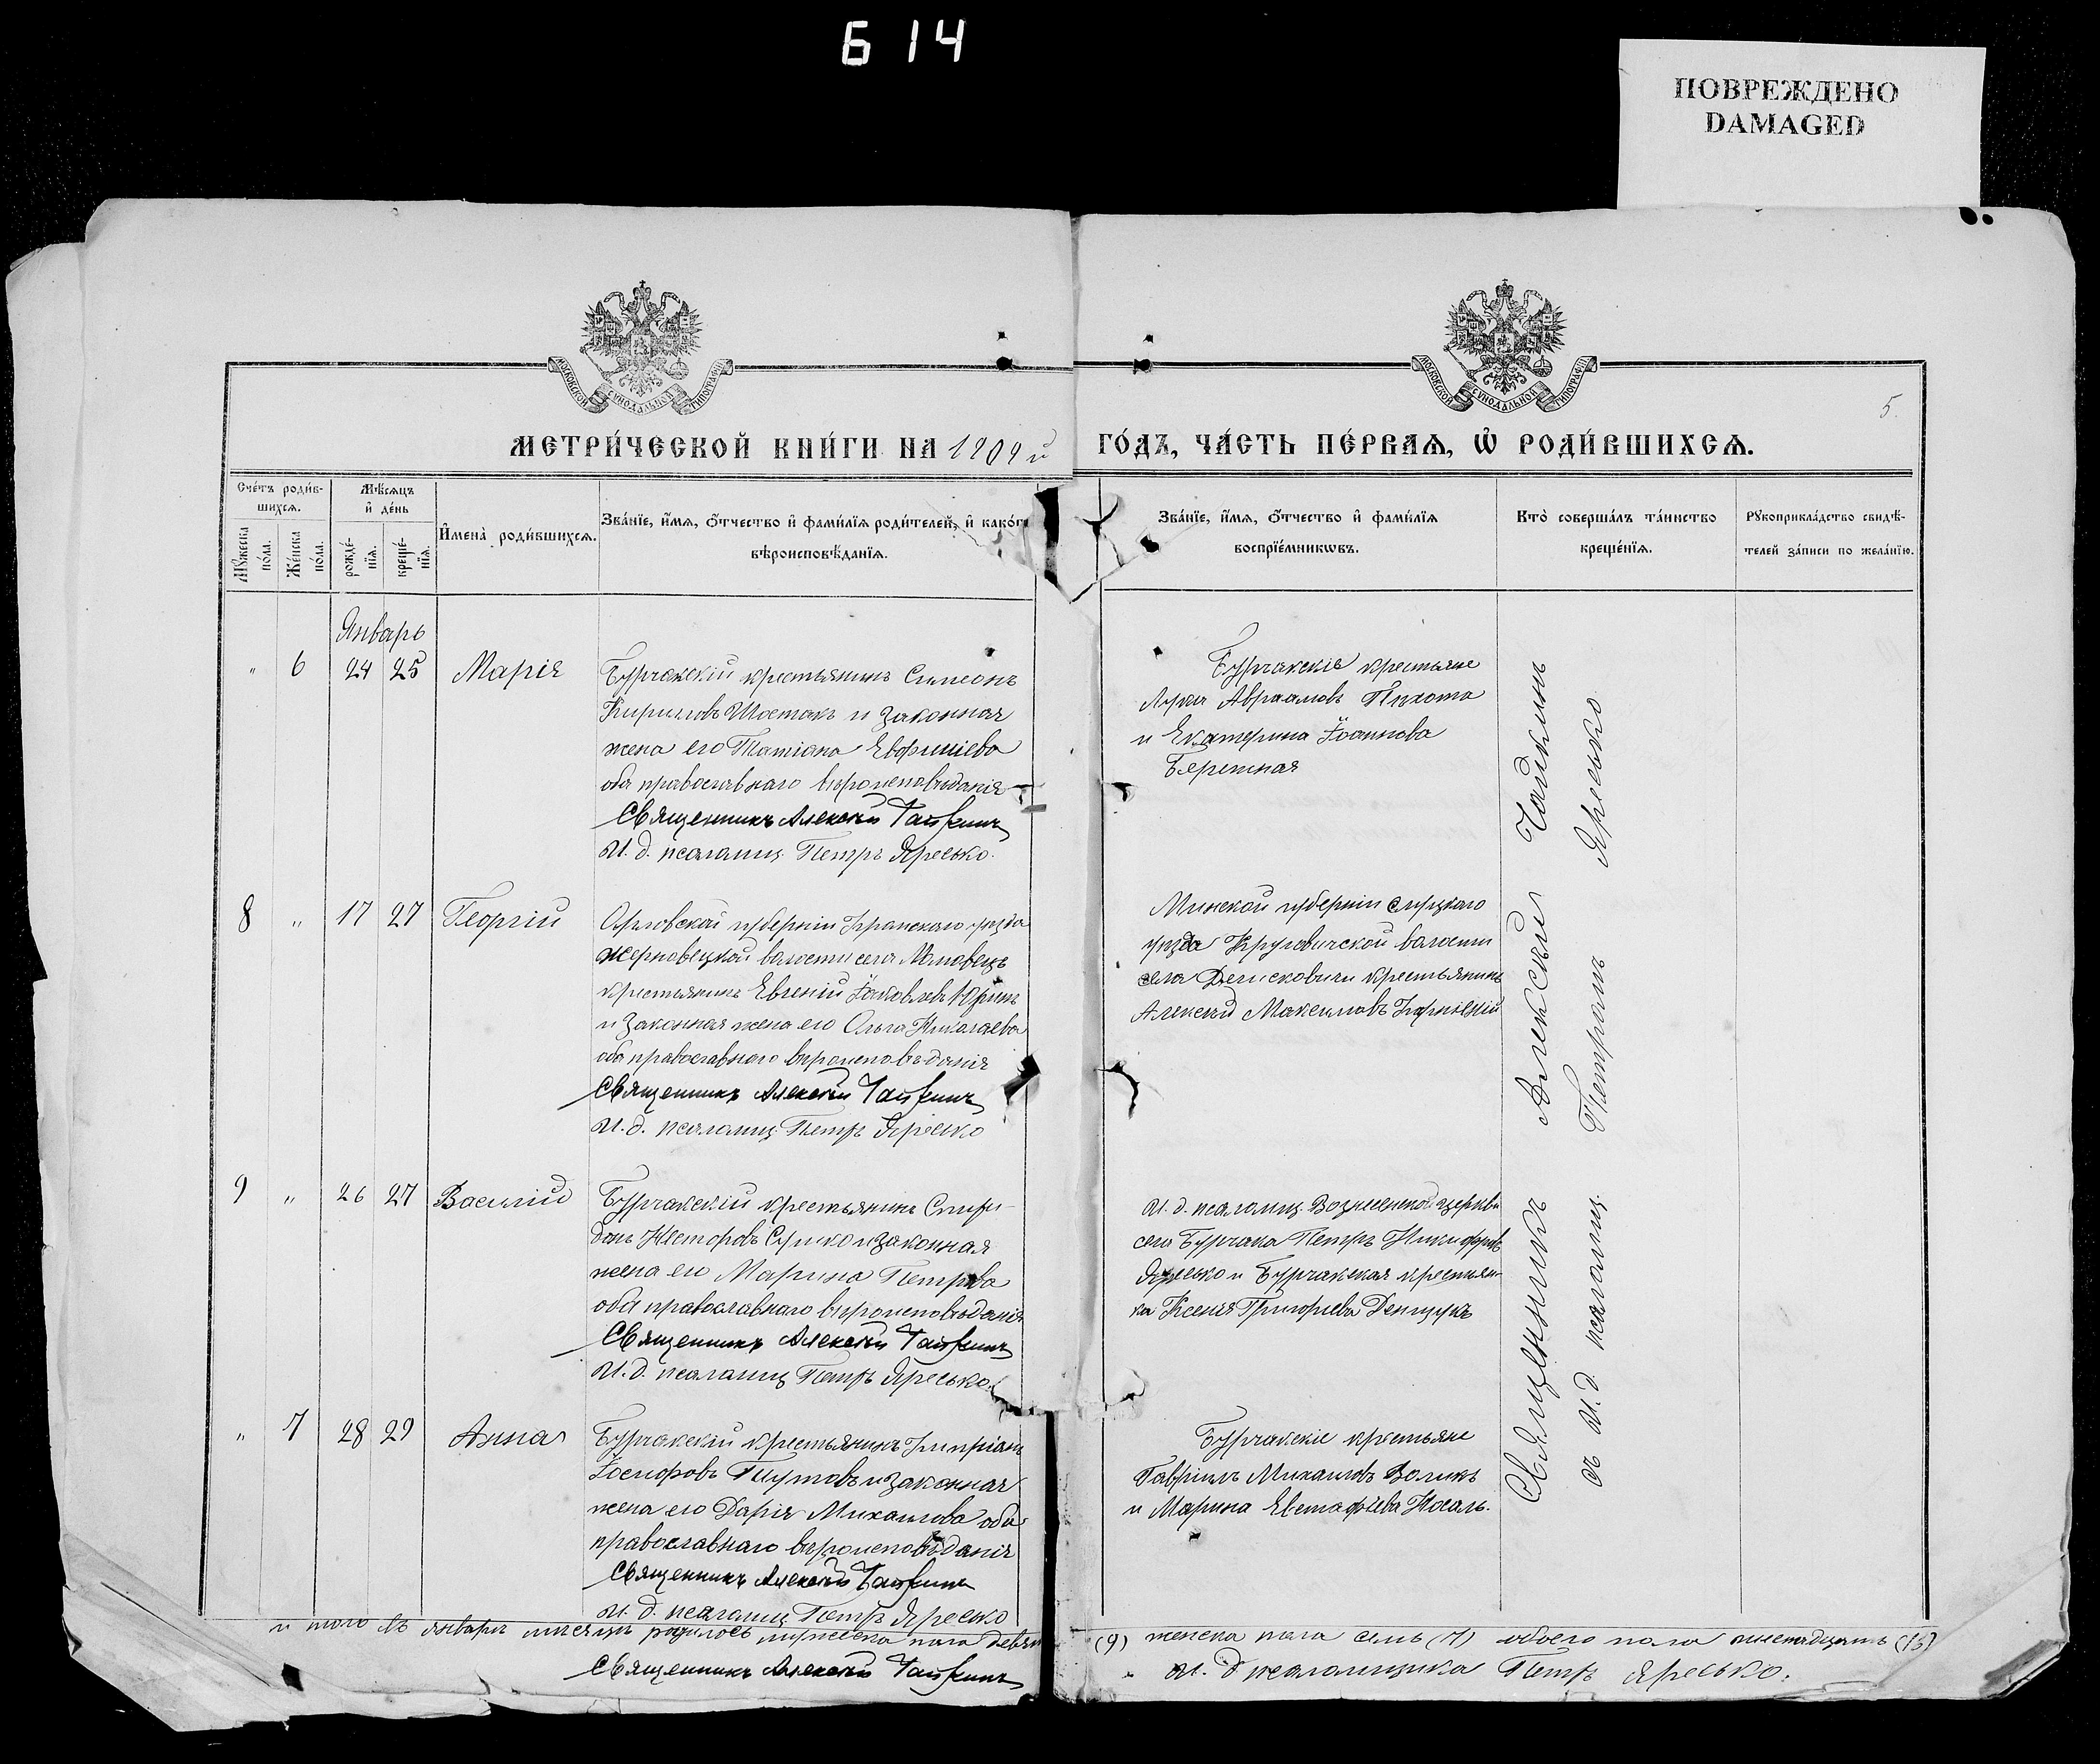 Б 14
ПОВРЕЖДЕНО
DAMAGED
МОСКОВСКОЙ СУНОДАЛЬНОЙ ТИПОГРАФІИ
МОСКОВСКОЙ СУНОДАЛЬНОЙ ТИПОГРАФІИ
5.
МЕТРИ́ЧЕСКОЙ КНИ́ГИ НА 1909 й ГО́ДЪ, ЧА́СТЬ ПЕ́РВАѦ, Ѽ РОДИ́ВШИХСѦ.
Сче́тъ роди́в-
шихся.
Мѣ́сяцъ
и҆ де́нь
Мꙋ́жеска
по́ла.
Же́нска
по́ла.
рожде́-
нїя.
креще́-
нїя.
И҆мена̀ роди́вшихся.
Зва́нїе, и҆́мя, ѻ҆́тчество и҆ фами́лїя роди́телей, и҆ како́гѡ
вѣроисповѣ́данїя.
Зва́нїе, и҆́мя, ѻ҆́тчество и҆ фами́лїя
воспрїе́мникѡвъ.
Кто̀ соверша́лъ та́инство
креще́нїя.
Рꙋкоприкла́дство свидѣ́-
телей за́писи по жела́нїю.
Январь
" 6 24 25 Марія
Бурчакскій крестьянинъ Симеонъ
Кириловъ Шостакъ и законная
жена его Татіана Евфиміева
оба православнаго вѣроисповѣданія
Священникъ Алексѣй Чайкинъ
И. д. псаломщ. Петръ Яресько.
Бурчакскіе крестьяне
Лука Авраамовъ Пихота
и Екатерина Іоаннова
Бережная
8 " 17 27 Георгій
Орловской губерніи Кромскаго уѣзда
Жерновецкой волости села
крестьянинъ Евгеній Іаковлевъ
и законная жена его Ольга Николаева
оба православнаго вѣроисповѣданія
Священникъ Алексѣй Чайкинъ
И. д. псаломщ. Петръ Яресько
Минской губерніи Слуцкаго
уѣзда Круговичской волости
села Денисковичи крестьянинъ
Алексѣй Максимовъ
9 " 26 27 Василій
Бурчакскій крестьянинъ Спири-
донъ Несторовъ и законная
жена его Марина Петрова
оба православнаго вѣроисповѣданія
Священникъ Алексѣй Чайкинъ
И. д. псаломщ. Петръ Яресько.
И. д. псаломщ. Вознесенской церкви
села Бурчака Петръ Никифоровъ
Яресько и Бурчакская крестьян-
ка Ксенія Григорьева Денщукъ
" 7 28 29 Анна
Бурчакскій крестьянинъ Кипріанъ
Іосифовъ Плутовъ и законная
жена его Дарія Михаилова оба
православнаго вѣроисповѣданія
Священникъ Алексѣй Чайкинъ
И. д. псаломщ. Петръ Яресько
Бурчакскіе крестьяне
Гавріилъ Михаиловъ Воликъ
и Марина Евстафіева Носаль.
Священникъ Алексѣй Чайкинъ
съ И. д. псаломщ. Петромъ Яресько
Итого въ январѣ мѣсяцѣ родилось мужеска пола девять (9) женска пола семь (7) обоего пола шестнадцать (16)
Священникъ Алексѣй Чайкинъ
И. д. псаломщика Петръ Яресько.